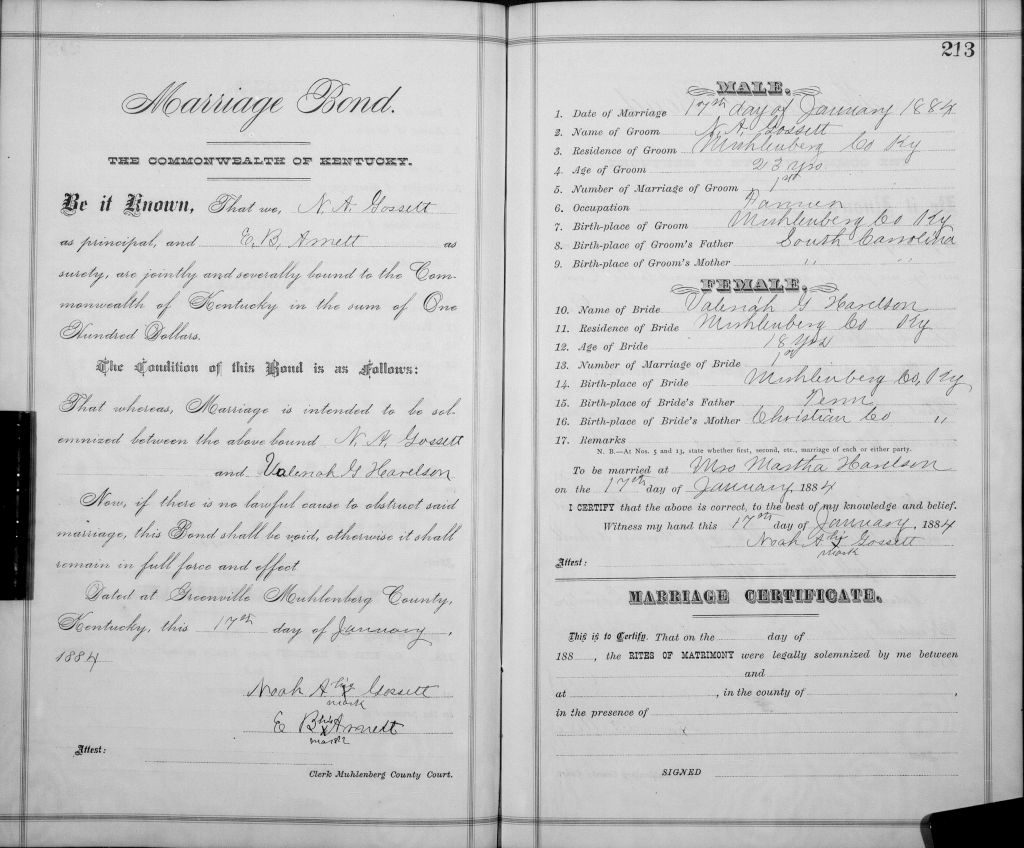 Marriage Bond.
THE COMMONWEALTH OF KENTUCKY.
Be it Known, That we, N. A. Gossett
as principal, and E. B. Arnett as
surety, are jointly and severally bound to the Com-
monwealth of Kentucky in the sum of One
Hundred Dollars.
The Condition of this Bond is as Follows:
That whereas, Marriage is intended to be sol-
emnized between the above bound N. A. Gossett
and Valeriah G Harelson
Now, if there is no lawful cause to obstruct said
marriage, this Bond shall be void, otherwise it shall
remain in full force and effect
Dated at Greenville Muhlenberg County,
Kentucky, this 17th day of January,
1884
Noah A his x mark Gossett
E B his x mark Arnett
Attest:
Clerk Muhlenberg County Court.
213
MALE.
1. Date of Marriage 17th day of January 1884
2. Name of Groom N. A. Gossett
3. Residence of Groom Muhlenberg Co Ky
4. Age of Groom 23 yrs
5. Number of Marriage of Groom 1st
6. Occupation Farmer
7. Birth-place of Groom Muhlenberg Co Ky
8. Birth-place of Groom's Father South Carrolina
9. Birth-place of Groom's Mother " "
FEMALE.
10. Name of Bride Valeriah G Harelson
11. Residence of Bride Muhlenberg Co Ky
12. Age of Bride 18 yrs
13. Number of Marriage of Bride 1st
14. Birth-place of Bride Muhlenberg Co, Ky
15. Birth-place of Bride's Father Tenn
16. Birth-place of Bride's Mother Christian Co "
17. Remarks
N. B.—At Nos. 5 and 13, state whether first, second, etc., marriage of each or either party.
To be married at Mrs Martha Harelson
on the 17th day of January 1884
I CERTIFY that the above is correct, to the best of my knowledge and belief.
Witness my hand this 17th day of January, 1884
Noah A his x mark Gossett
Attest:
MARRIAGE CERTIFICATE.
This is to Certify. That on the day of
188 , the RITES OF MATRIMONY were legally solemnized by me between
and
at , in the county of ,
in the presence of
SIGNED